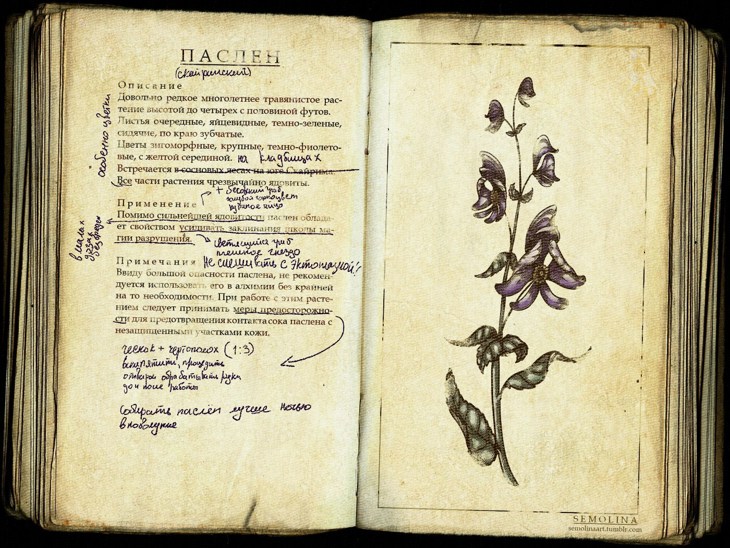 ПАСЛЕН
(скайримский)
Описание
Довольно редкое многолетнее травянистое рас-
тение высотой до четырех с половиной футов.
Листья очередные, яйцевидные, темно-зеленые,
сидячие, по краю зубчатые.
Цветы зигоморфные, крупные, темно-фиолето-
вые, с желтой серединой. на кладбищах
Встречается в сосновых лесах на юге Скайрима.
Все части растения чрезвычайно ядовиты.
особенно цветки
Применение
Помимо сильнейшей ядовитости паслен облада-
ет свойством усиливать заклинания школы ма-
гии разрушения.
в малых
дозах
безвреден
Примечания Не смешивать с эктоплазмой!
Ввиду большой опасности паслена, не рекомен-
дуется использовать его в алхимии без крайней
на то необходимости. При работе с этим расте-
нием следует принимать меры предосторожно-
сти для предотвращения контакта сока паслена с
незащищенными участками кожи.
чеснок + чертополох (1:3)
вскипятить, процедить
отваром обрабатывать руки
до и после работы
собирать паслён лучше ночью
в новолуние
SEMOLINA
semolinaart.tumblr.com